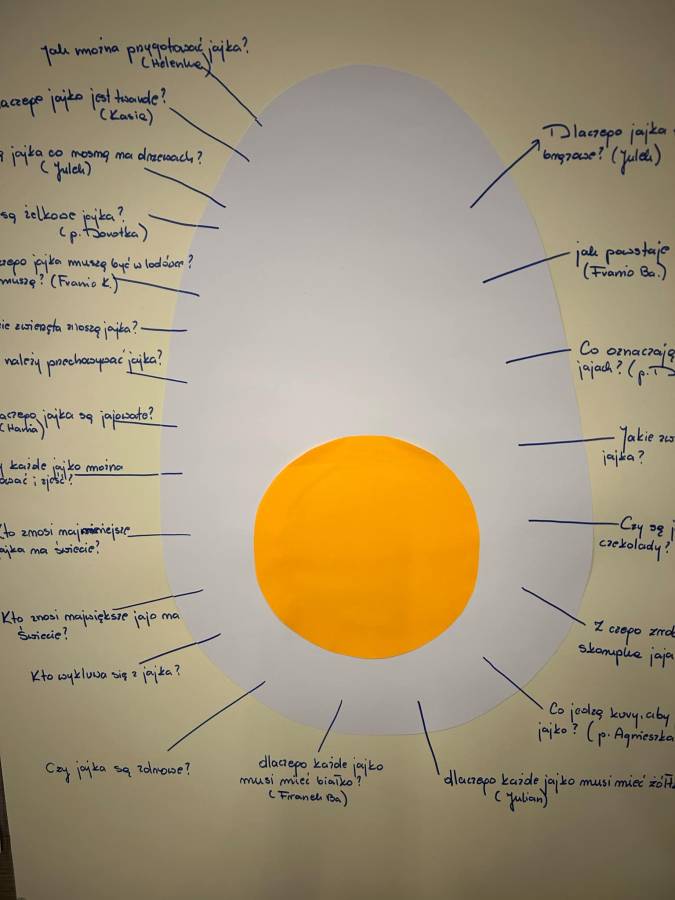 Jak można przygotować jajka?
(Helenka)
jajko jest twarde?
(Kasia)
jajka co rosną na drzewach?
(Julek)
są żelkowe jajka?
(p. Dorotka)
jajka muszą być w lodówce?
muszą? (Franio K.)
zwierzęta znoszą jajka?
należy przechowywać jajka?
jajka są jajowate?
(Hania)
każde jajko można
i zjeść?
Kto znosi najmniejsze
jajka na świecie?
Kto znosi największe jajo na
świecie?
Kto wykluwa się z jajka?
Czy jajka są zdrowe?
dlaczego każde jajko
musi mieć białko?
(Franek Ba)
dlaczego każde jajko musi mieć
(Julian)
Dlaczego jajka
brązowe? (Julek)
jak powstaje
(Franio Ba.)
Co oznaczają
jajach? (p.
Jakie
jajka?
Czy są
czekolady?
Z czego
skorupka jaja
Co jedzą kury, aby
jajko? (p. Agnieszka